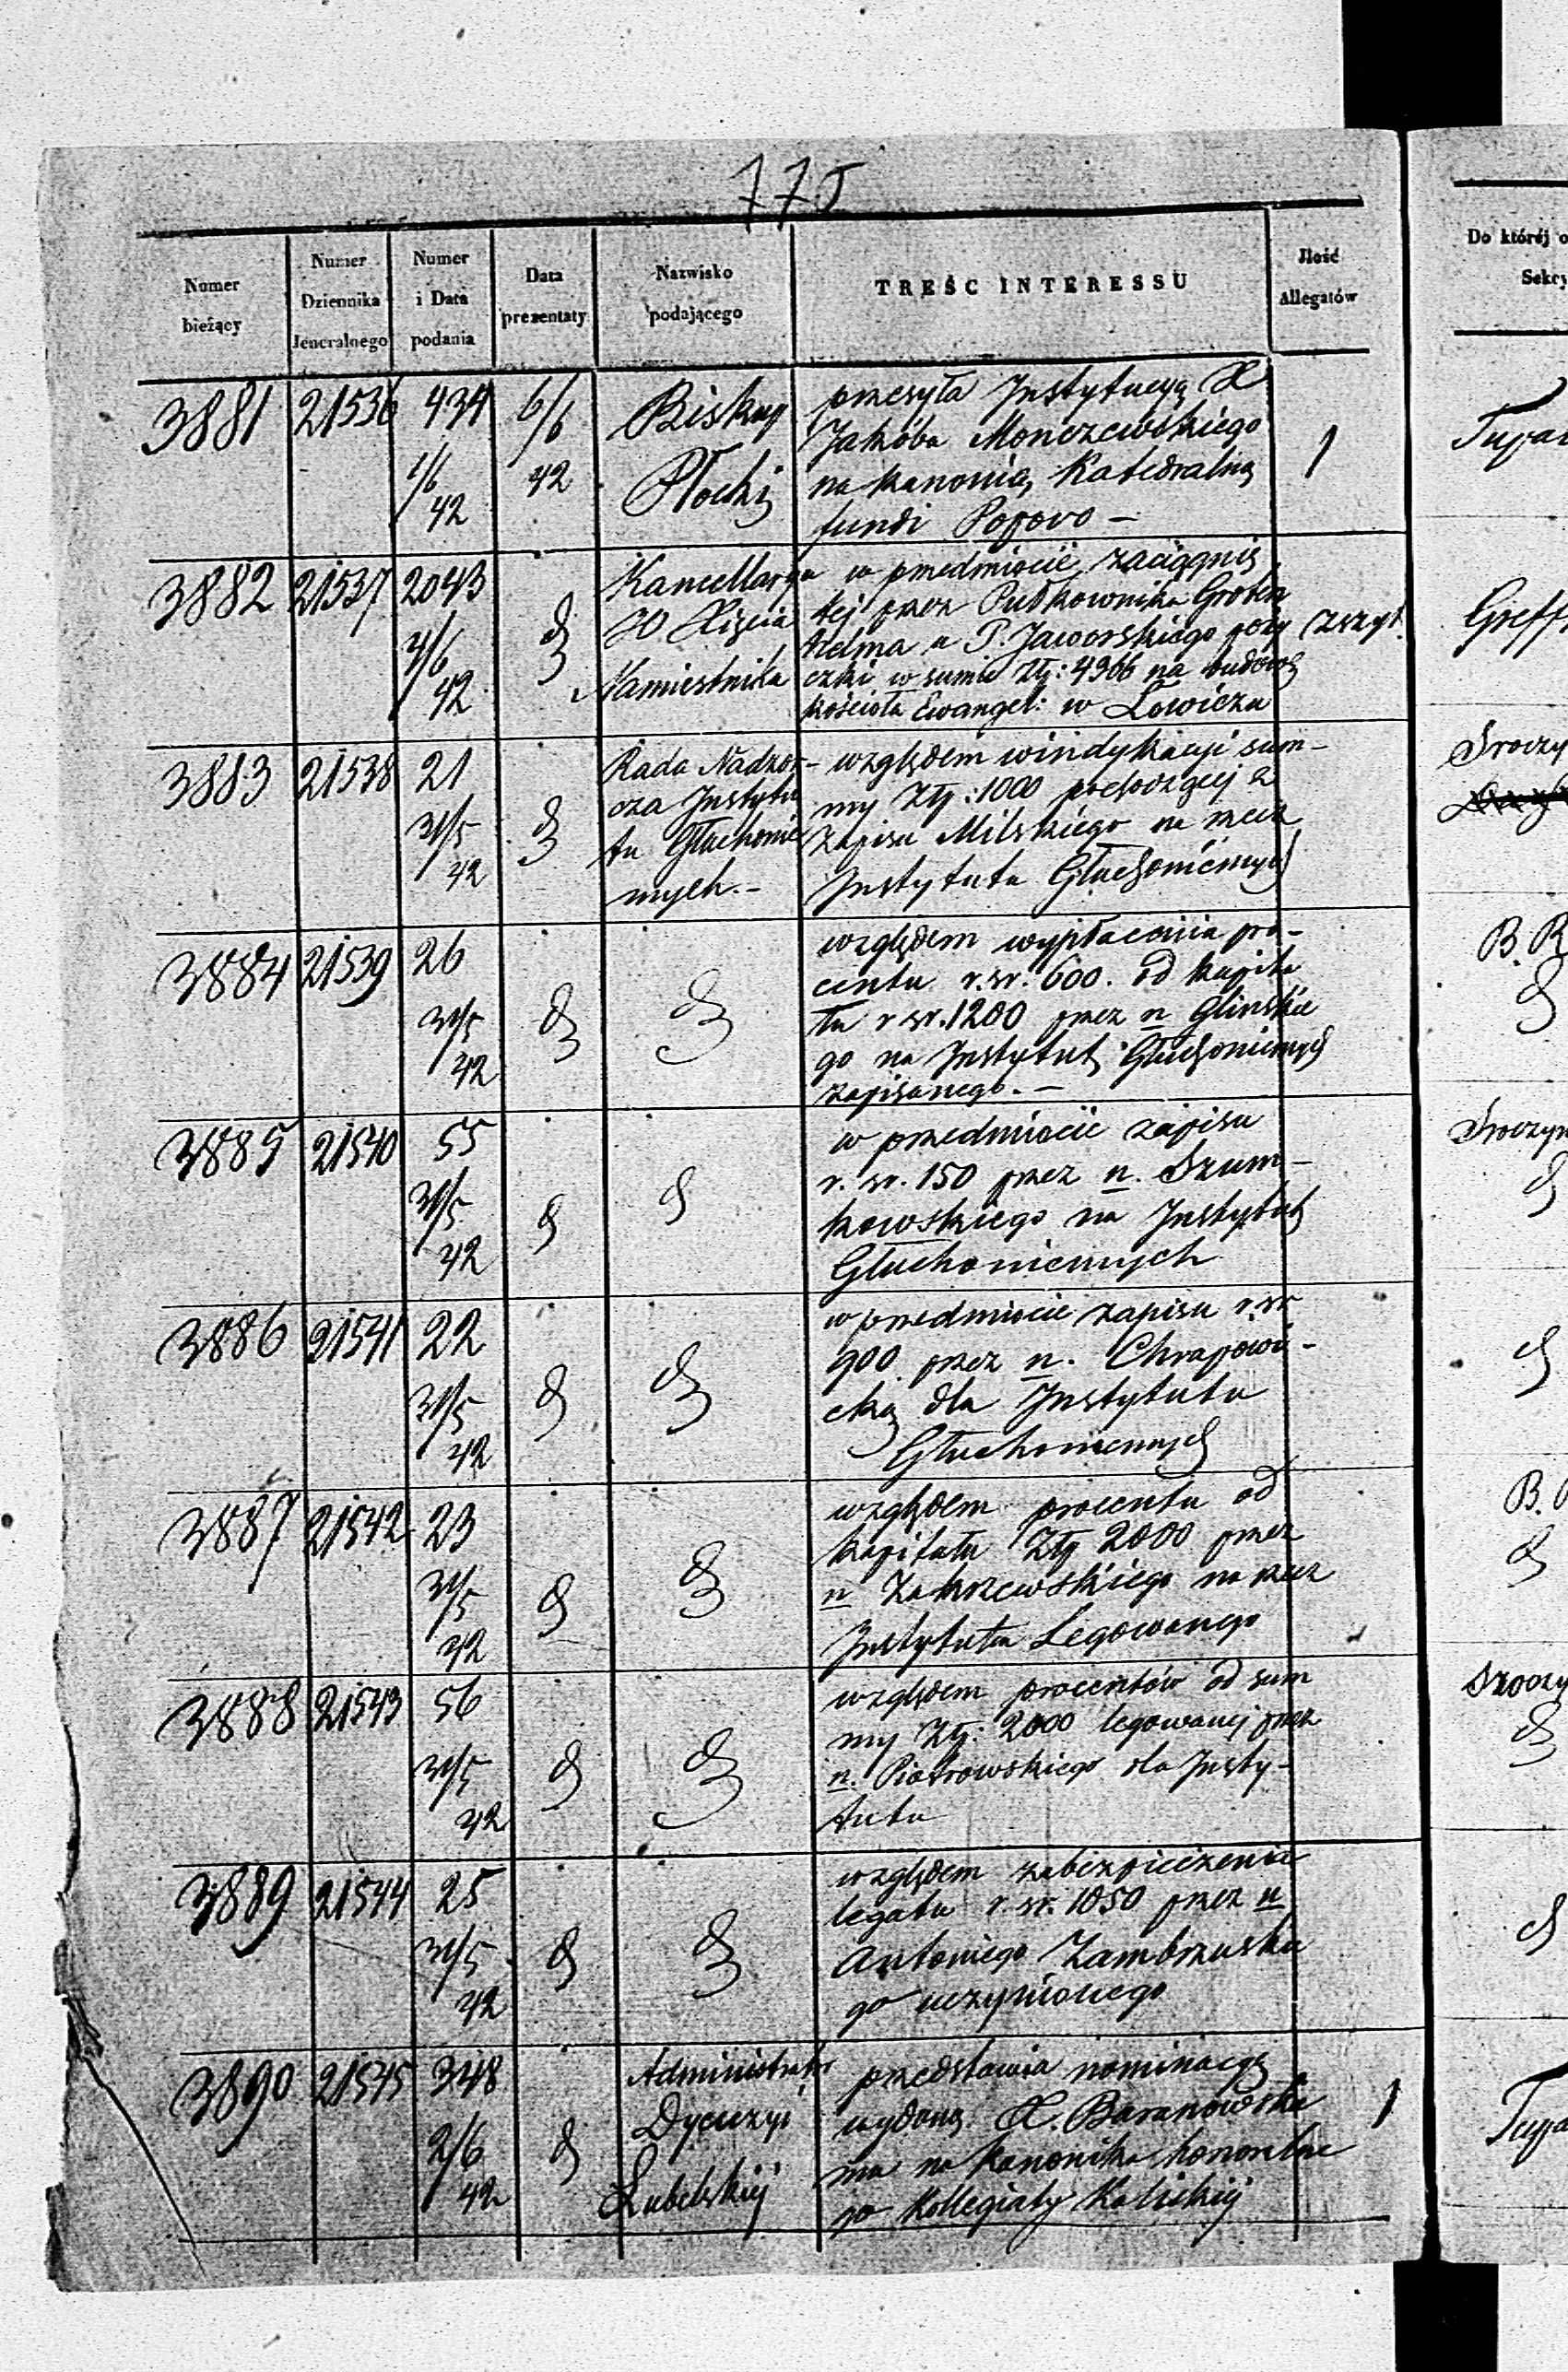 775
Numer bieżący
Numer Dziennika Jeneralnego
Numer i Data podania
Data prezentaty
Nazwisko podającego
TREŚĆ INTERESSU
Ilość Allegatów
Do którój o
Sekry
3881 21536 434 1/6 42 6/6 42
Biskup
Płocki
przesyła Instytucyą X
Jakóba Monczewskiego
na kanonią Katedralną
fundi Popowo –
1
3882 21537 2043 4/6 42 d
Kancellarya
JO Xięcia
Namiestnika
w przedmiocie zaciągnię
tej przez Pułkownika Groten
helma u P. Jaworskiego poży
czki w sumie Złp: 4966 na budowę
kościoła Ewangel: w Łowiczu
zszyt.
Greff
3883 21538 21 31/5 42 d
Rada Nadzor-
cza Instytu
tu Głuchonie
mych. –
względem windykacyi sum-
my Złp: 1000 pochodzącej z
Zapisu Milskiego na rzecz
Instytutu Głuchoniemych
Sroczy
3884 21539 26 31/5 42 d d
względem wypłacenia pro-
centu r. sr. 600. od kapita
łu r sr. 1200 przez n Glinskie
go na Instytut Głuchoniemych
zapisanego. –
B. R
d
3885 21540 55 31/5 42 d d
w przedmiocie zapisu
r. sr. 150 przez n. Szum-
kowskiego na Instytut
Głuchoniemych
Sroczyn
d
3886 21541 22 31/5 42 d d
w przedmiocie zapisu r. sr
900 przez n. Chrapowi-
cką dla Instytutu
Głuchoniemych
d
3887 21542 23 31/5 42 d d
względem procentu od
kapitału Złp 2000 przez
n Zakrzewskiego na rzecz
Instytutu Legowanego
B.
d
3888 21543 56 31/5 42 d d
względem procentów od sum
my Złp: 2000 legowanej przez
n. Piotrowskiego dla Insty-
tutu
Sroczy
d
3889 21544 25 31/5 42 d d
względem zabezpieczenia
legatu r. sr. 1050 przez n
Antoniego Zambrzuskie
go uczynionego
d
3890 21545 348 2/6 42 d
Administrator
Dyecezyi
Lubelskiej
przedstawia nominacyę
wydaną X. Baranowskie
mu na kanonika honorowe
go Kollegiaty Kaliskiej
1